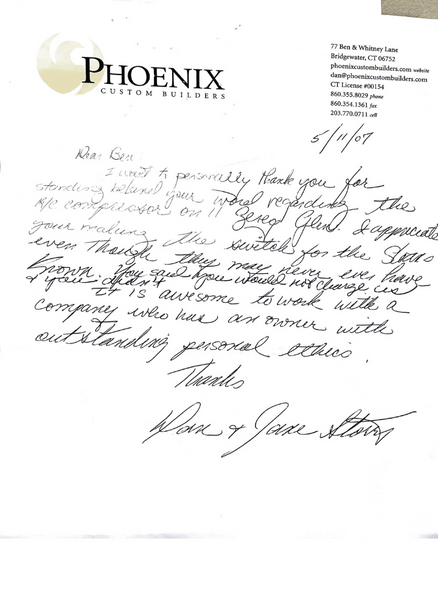 PHOENIX
CUSTOM BUILDERS
77 Ben & Whitney Lane
Bridgewater, CT 06752
phoenixcustombuilders.com website
dan@phoenixcustombuilders.com
CT License #00154
860.355.8029 phone
860.354.1361 fax
203.770.0711 cell
5/11/07
Dear Ben
I want to personally thank you for
standing behind your word regarding the
A/C compressor on 11 Glen. I appreciate
your making the switch for the
even though they may never ever have
known. You said you would not charge us
& you didn't
It is awesome to work with a
company who has an owner with
outstanding personal ethics.
Thanks
Dan & Jane